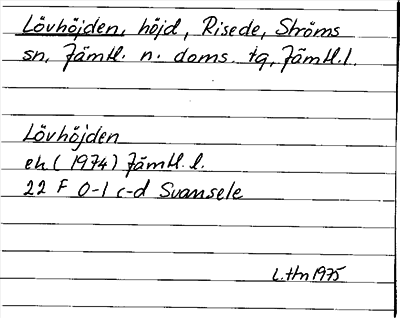 Lövhöjden, höjd, Risede, Ströms
sn, Jämtl. n. doms. tg, Jämtl.l.
Lövhöjden
ek (1974) Jämtl. l.
22 F 0-1 c-d Svansele
L.Hn 1975